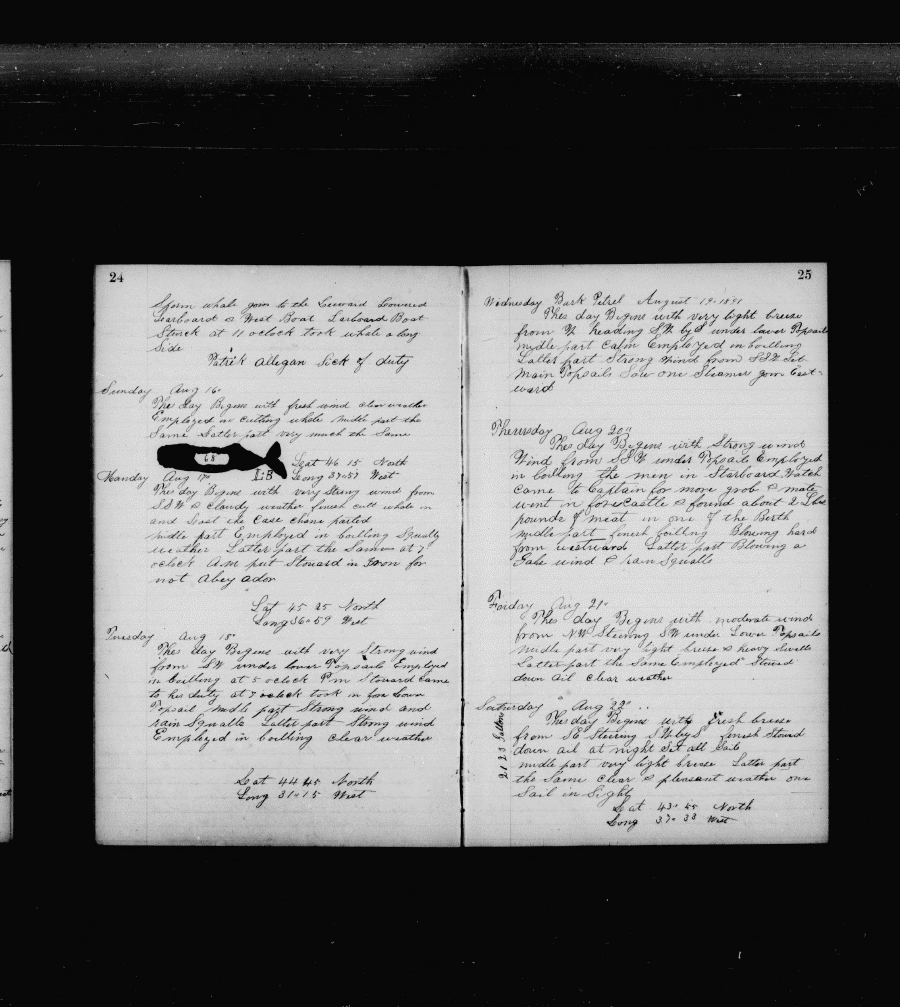 24
Sperm whale goin to the Leeward Lowered
Starboard & West Boat Larboard Boat
Struck at 11 oclock took whale a long
Side
Patrik allegan Sick of duty
Sunday Aug 16"
Thes day Begins with fresh wind clear weather
Employed in cutting whale midle part the
Same Latter part very much the Same
68
LB
Leat 46 15 North
Long 37-57 West
Monday Aug 17"
Thes day Begins with very Strong wind from
SSW & Claudy weather finesh cutt whale in
and Lost the Case chane parted
midle part Employed in boilling Squally
weather Latter part the Same at 7
oclick Am put Stouard in Iron for
not Abey ador
Lat 45 25 North
Long 36-59 West
Tuesday Aug 18"
Thes day Begins with very Strong wind
from SW under lower Topsails Employed
in boilling at 5 oclock Pm Stouard came
to his duty at 7 oclock took in fore Lower
Topsail midle part Strong wind and
rain Squalls Latter part Strong wind
Employed in boilling clear weather
Leat 44 45 North
Long 31-15 West
25
Wednesday Bark Petrel August 19-1891
Thes day Begins with very light breese
from W heading SW by S under lower Topsails
midle part calm Employed in boilling
Latter part Strong Wind from SSW
Main Topsails Saw one Steamer goin East-
ward
Thurusday Aug 20"
Thes day Begins with Strong wind
Wind from SSW under Topsails Employed
in boilling the men in Starboard Watch
came to Captain for more grob & mate
went in forecastle & found about 2 Lbs
pounds of meat in one of the Berth
midle part finesh boilling Blowing hard
from westward Latter part Blowing a
Gale wind & rain Squalls
Friday Aug 21"
Thes day Begins with moderate wind
from NW Stering SW under Lower Topsails
midle part very light breese & heavy Swells
Latter part the Same Employed Stowed
down ail clear weather
Saturday Aug 22"
Thes day Begins with fresh breese
from SE Stering SW by S finesh Stowed
down ail at night Set all Sails
midle part very light breese Latter part
the Same clear & pleasent weather one
Sail in Sight
Leat 43-55 North
Long 37-33 West
2123 Gallons